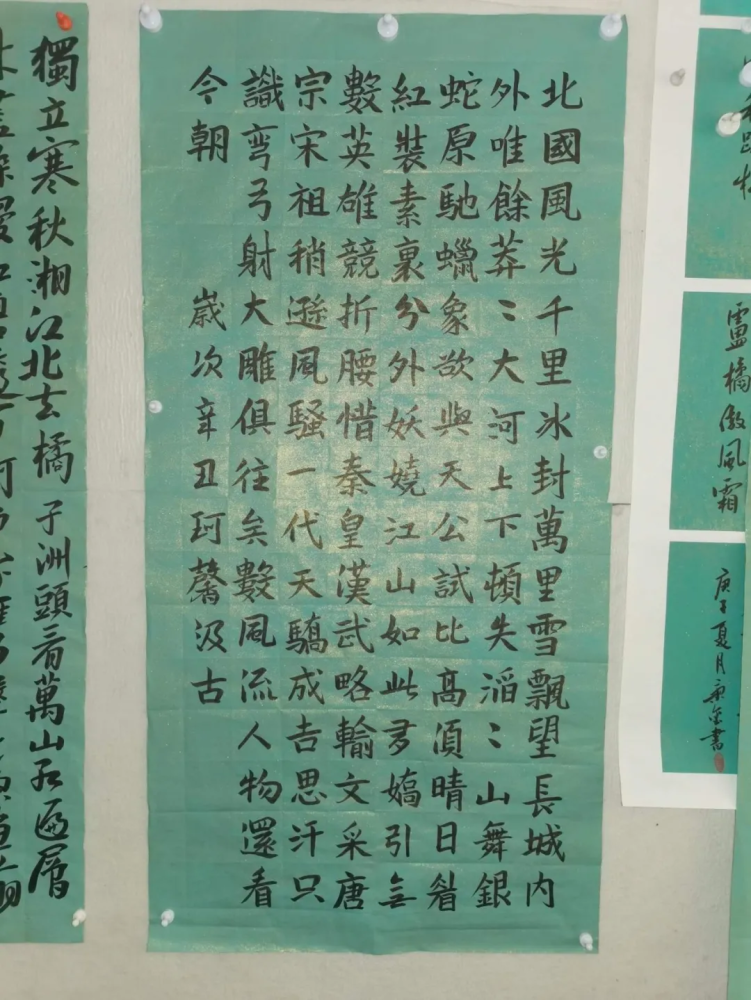 盧橘傲風霜
庚子夏月
書
北國風光千里冰封萬里雪飄望長城内
外唯餘莽〻大河上下頓失滔〻山舞銀
蛇原馳蠟象欲與天公試比高須晴日看
紅裝素裹分外妖嬈江山如此多嬌引無
數英雄競折腰惜秦皇漢武略輸文采唐
宗宋祖稍遜風騷一代天驕成吉思汗只
識彎弓射大雕俱往矣數風流人物還看
今朝 歲次辛丑珂馨汲古
獨立寒秋湘江北去橘子洲頭看萬山紅遍層